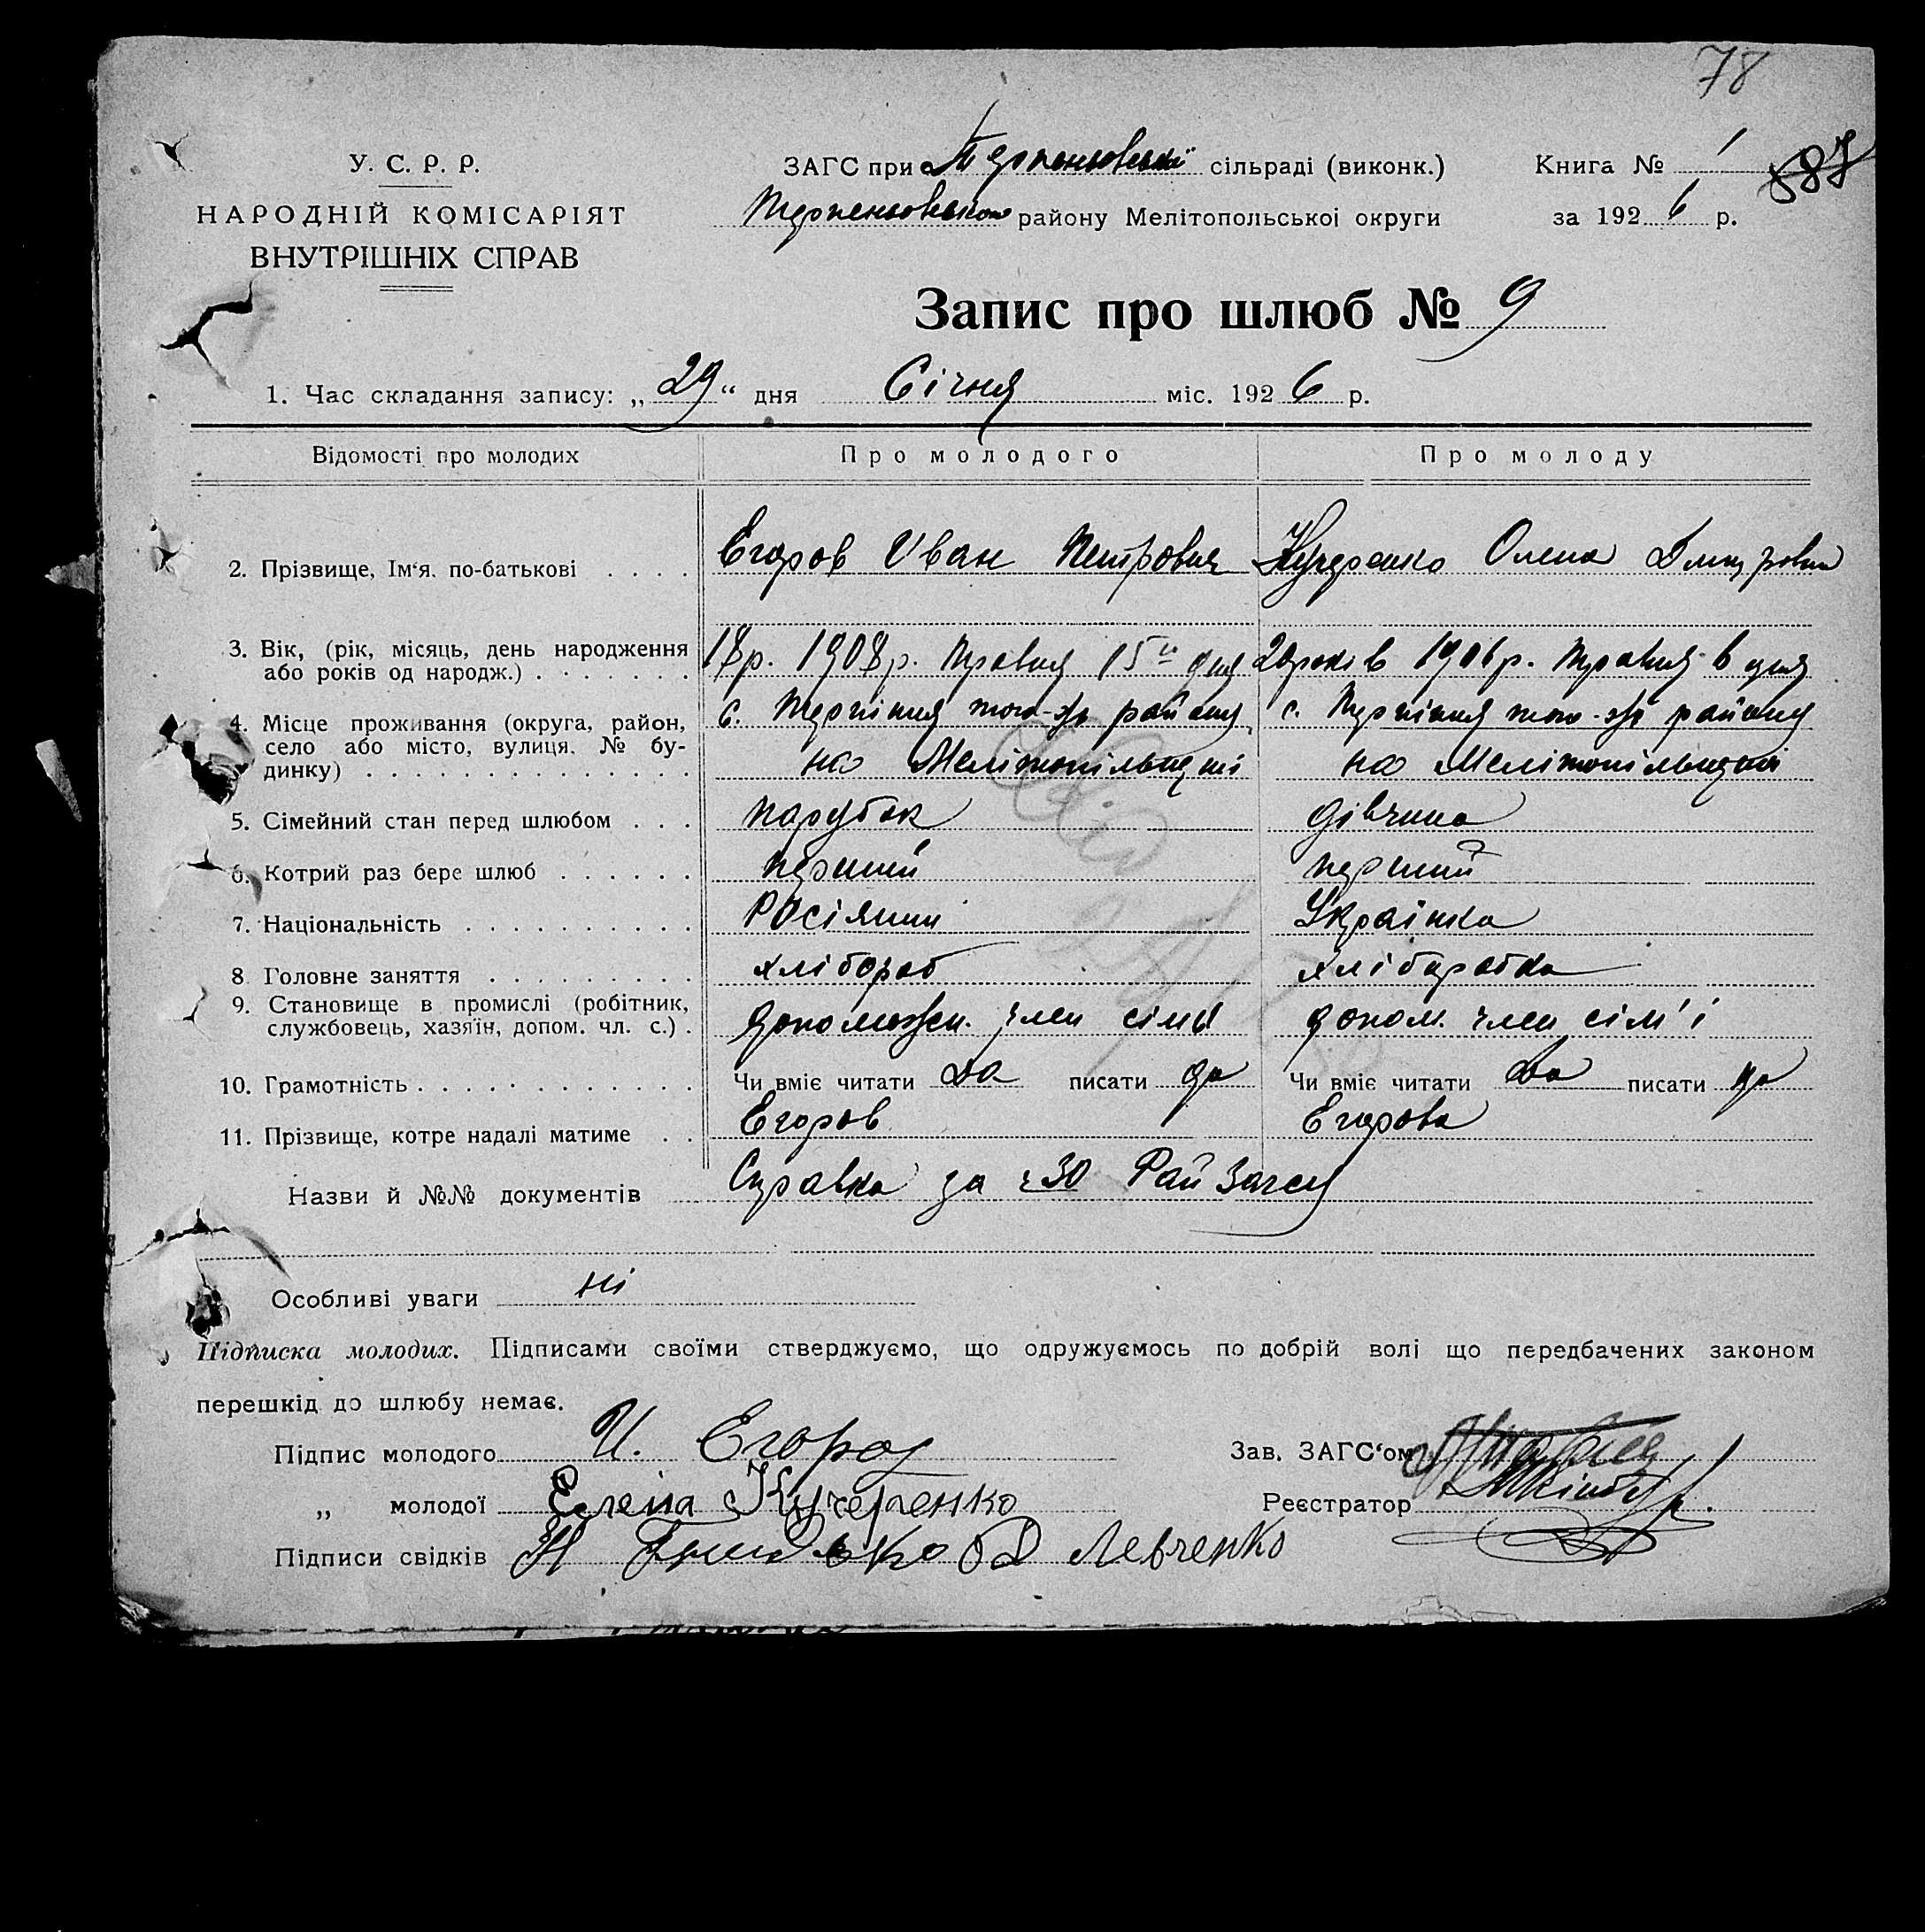 78
У. С. Р. Р.
НАРОДНІЙ КОМІСАРІЯТ
ВНУТРІШНІХ СПРАВ
ЗАГС при Терпеньовській сільраді (виконк.)
Терпеньовського району Мелітопольської округи
Книга № 1
587
за 1926 р.
Запис про шлюб № 9
1. Час складання запису: „29“ дня Січня міс. 1926 р.
Відомості про молодих Про молодого Про молоду
2. Прізвище, Ім‘я, по-батькові . . . . Егоров Иван Петрович Кучеренко Олена Дмитровна
3. Вік, (рік, місяць, день народження 18р. 1908р. Травня 15го дня 20років 1906р. Травня 6 дня
або років од народж.) . . . . . . .
4. Місце проживання (округа, район, с. Терпіння того-ж району с. Терпіння того-ж району
село або місто, вулиця. № бу- на Мелітопільщині на Мелітопільщині
динку) . . . . . . . . . . . . . .
5. Сімейний стан перед шлюбом . . . парубок дівчина
6. Котрий раз бере шлюб . . . . . . перший перший
7. Національність . . . . . . . . . . Росіянин Українка
8 Головне заняття . . . . . . . . . хлібороб хліборобка
9. Становище в промислі (робітник, допоможн. член сімї допом. член сім'ї
службовець, хазяїн, допом. чл. с.) .
10. Грамотність . . . . . . . . . . . . Чи вміє читати да писати да Чи вміє читати да писати да
11. Прізвище, котре надалі матиме . . Егоров Егорова
Назви й №№ документів Справка за ч30 РайЗагсу
Особливі уваги ні
Підписка молодих. Підписами своїми стверджуємо, що одружуємось по добрій волі що передбачених законом
перешкід до шлюбу немає.
Підпис молодого И. Егоров Зав. ЗАГС‘ом
„ молодої Елена Кучеренко Реєстратор
Підписи свідків Левченко